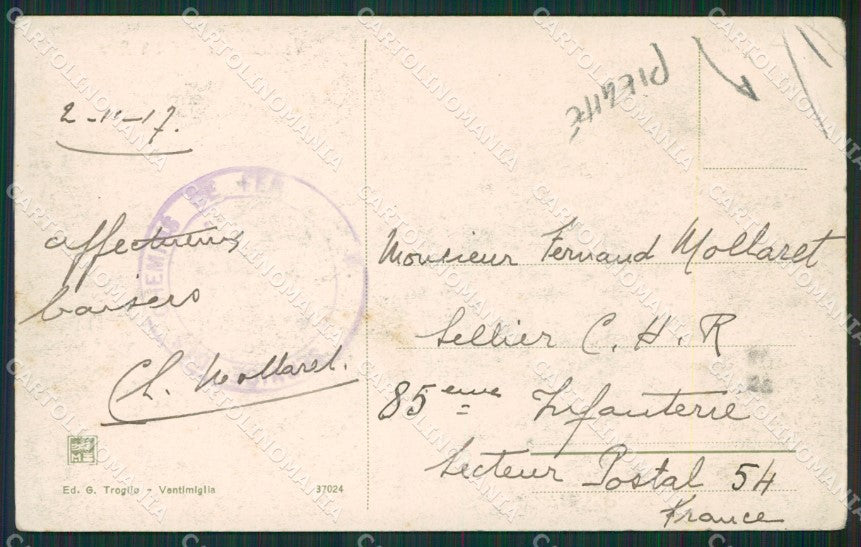 2-11-17.
affectueux
baisers
Ch. Mollaret.
Ed. G. Troglio - Ventimiglia
37024
CHEMINS DE FER
PIEGHE
Monsieur Fernand Mollaret
Sellier C. H. R
85eme Infanterie
Secteur Postal 54
France
CARTOLINOMANIA